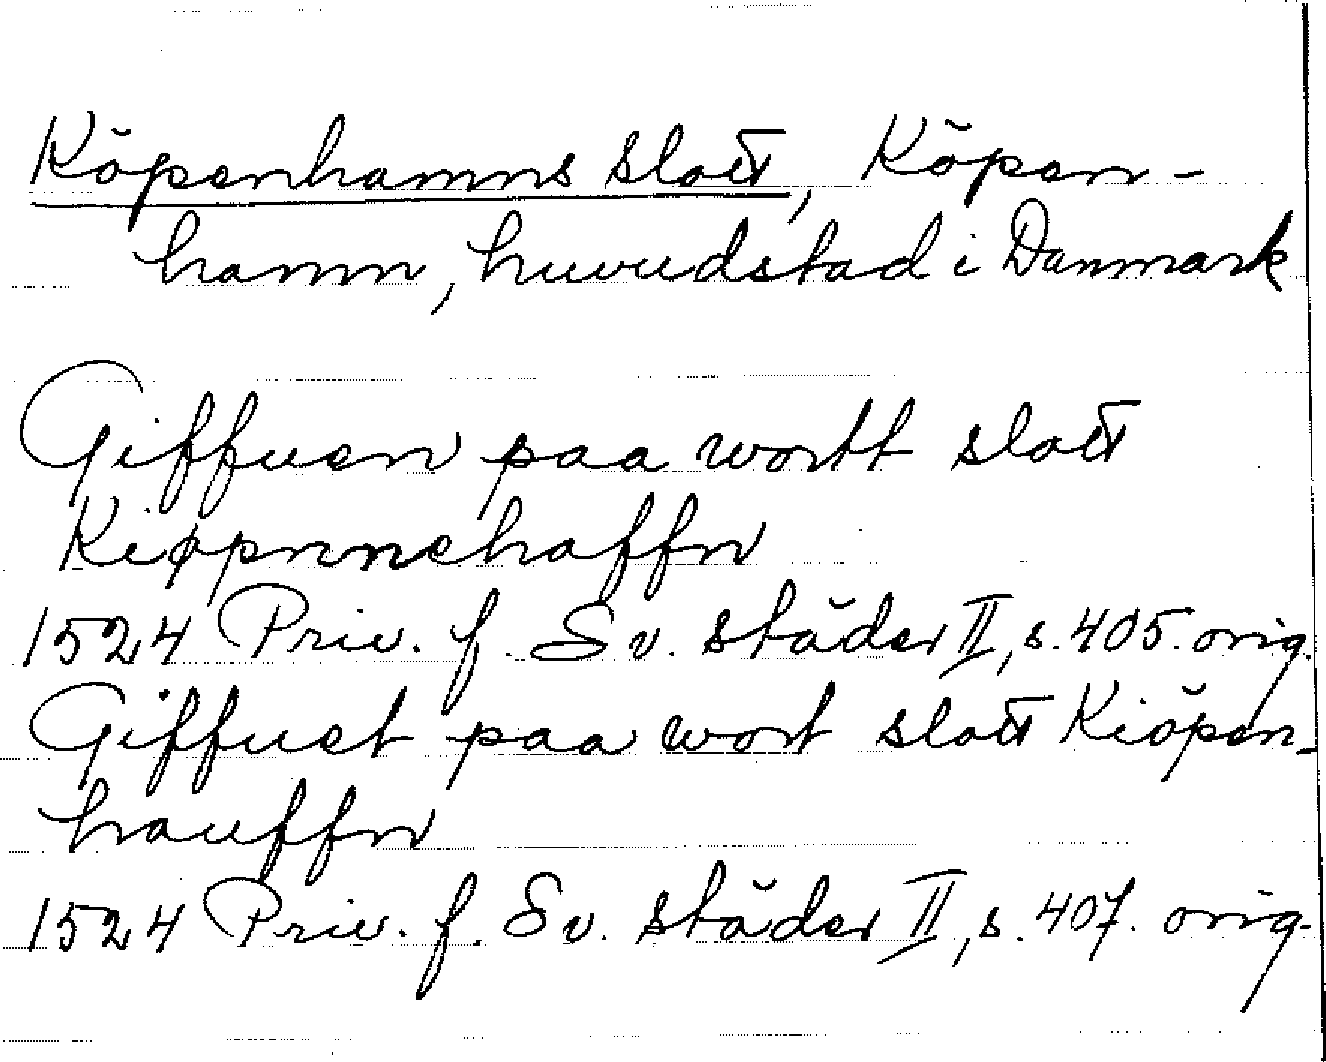 Köpenhamns slott, Köpen-
hamn, huvudstad i Danmark
Giffuen paa wortt slott
Kiøpnnehaffn
1524 Priv. f. Sv. städer II, s. 405. orig.
Giffuet paa wort slott Kiöpen-
hauffn
1524 Priv. f. Sv. städer II, s. 407. orig.